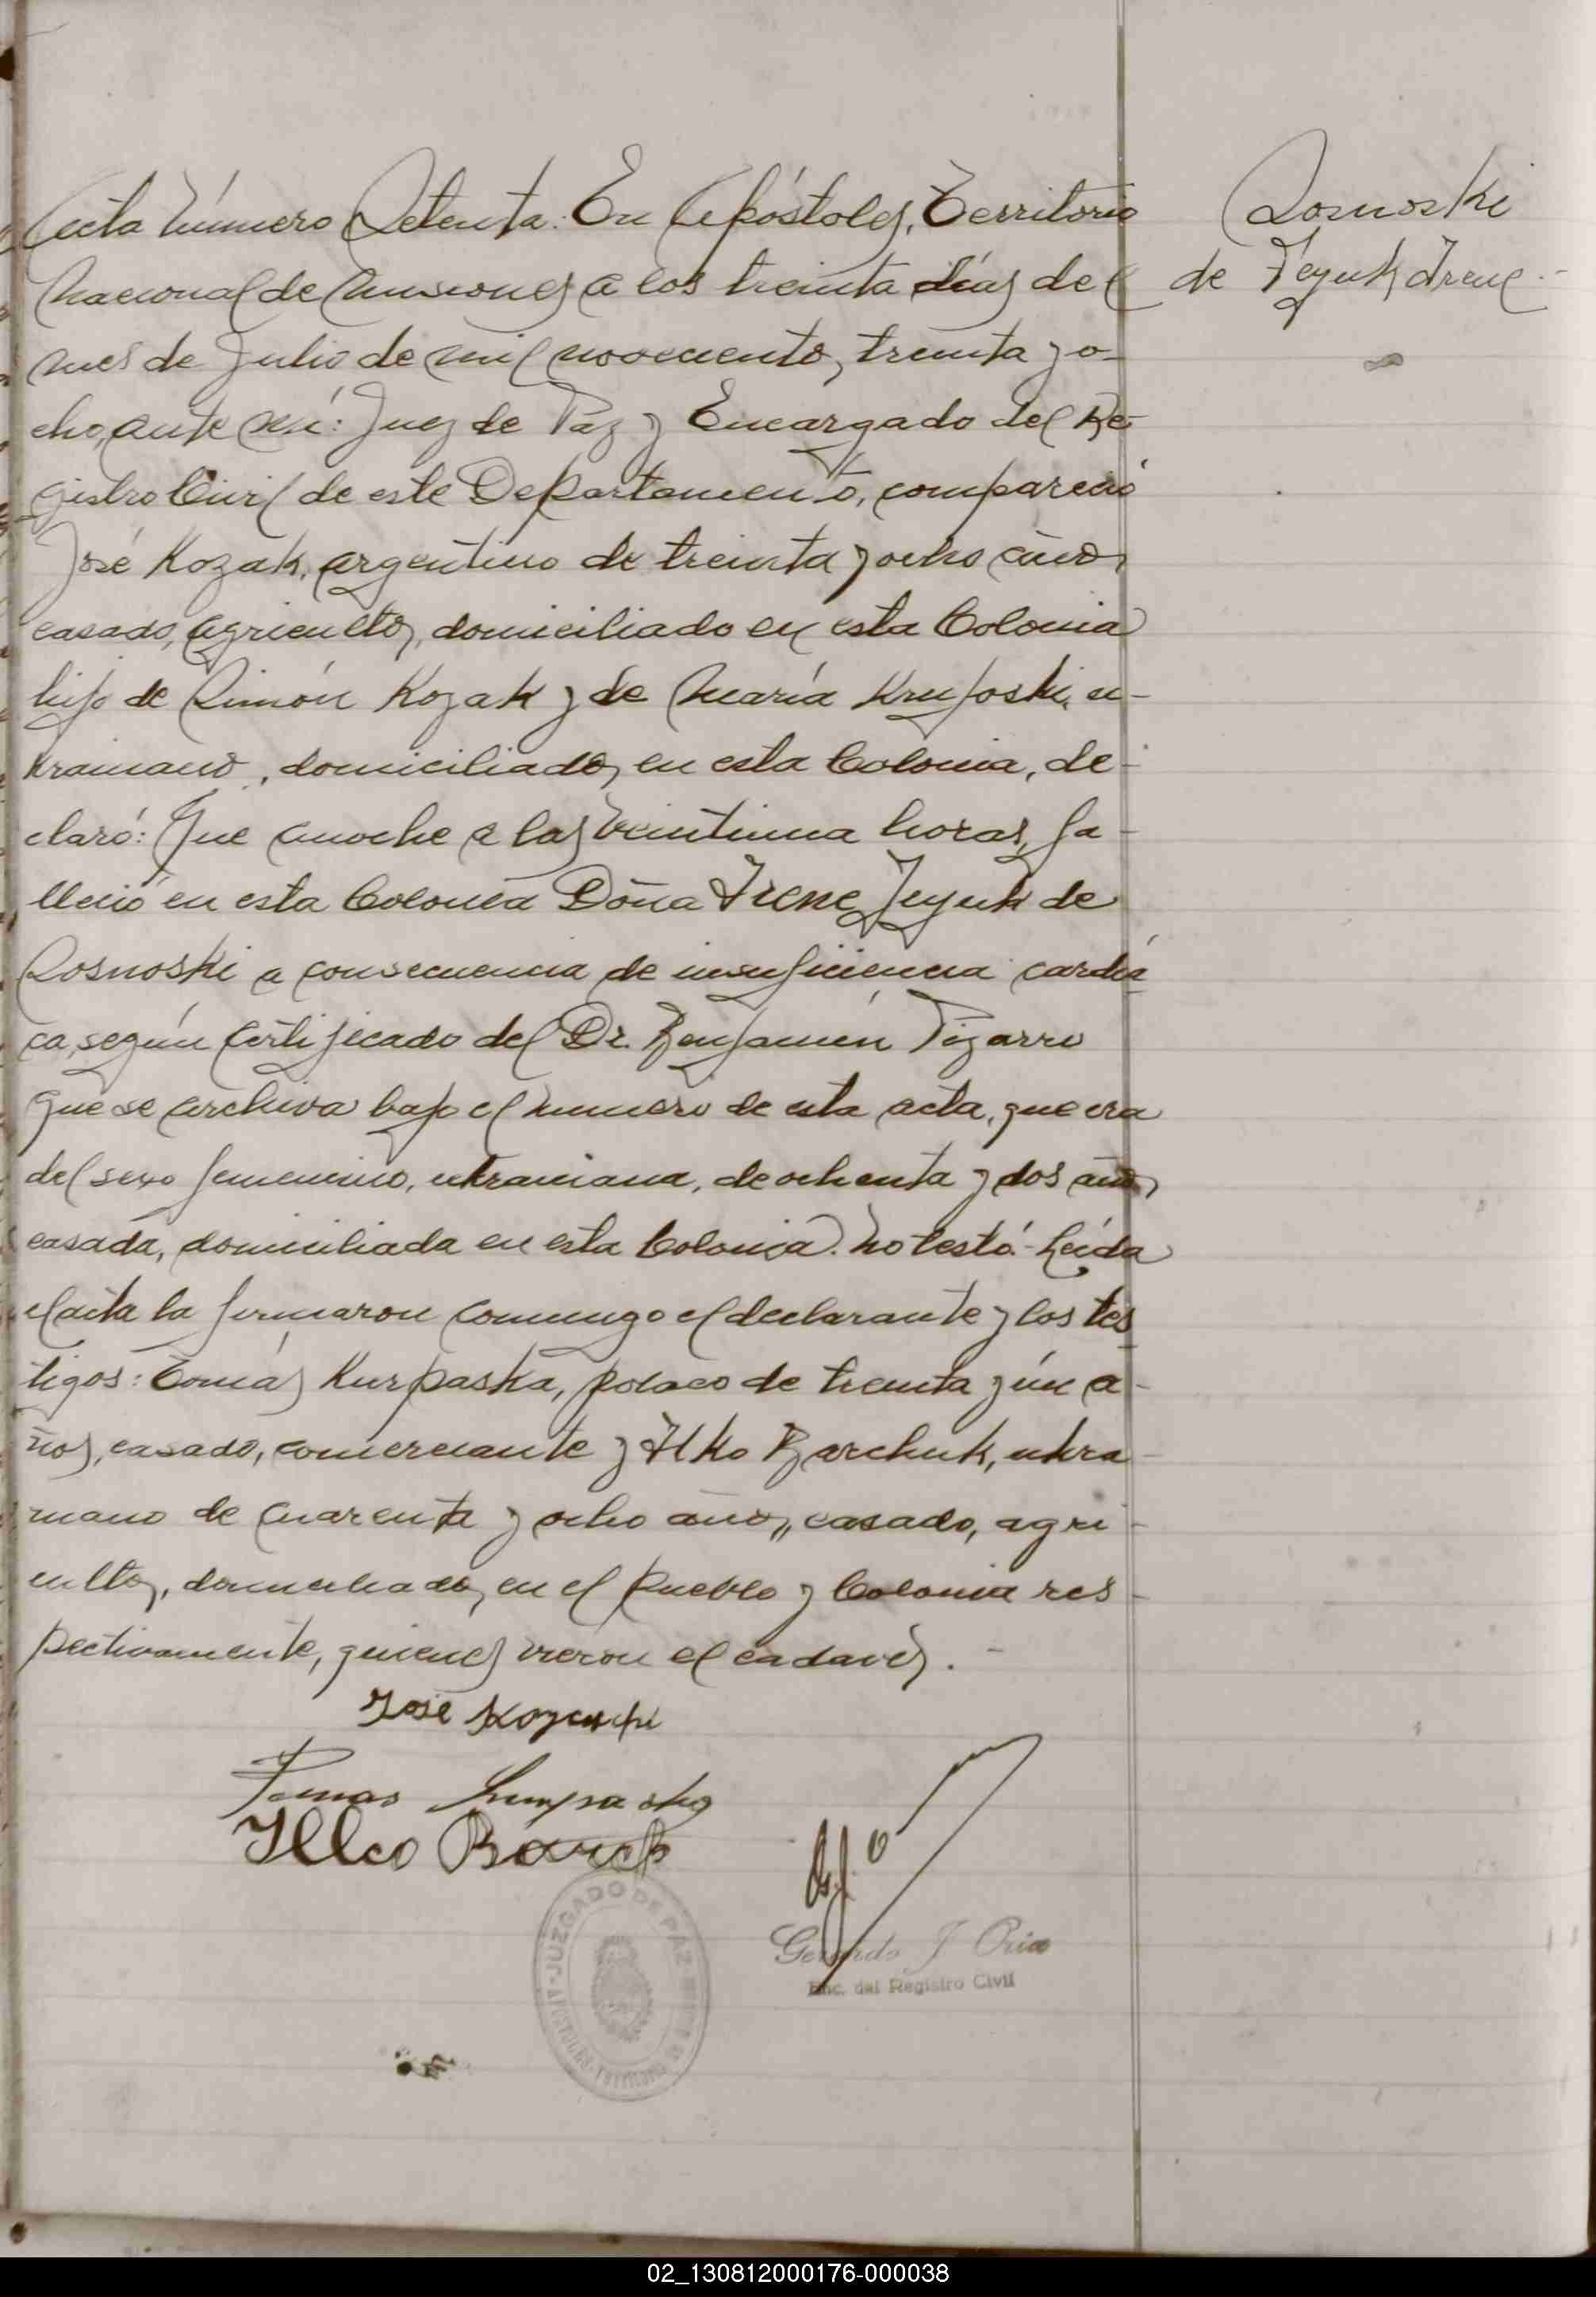 Acta número Setenta. En Apóstoles, Territorio
Nacional de Misiones a los treinta días del
mes de Julio de mil novecientos treinta y o-
cho, ante mí: Juez de Paz y Encargado del Re-
gistro Civil de este Departamento, compareció
José Kozak, argentino de treinta y ocho años
casado, agricultor, domiciliado en esta Colonia
hijo de Simón Kozak y de María Krujoski, u-
kranianos, domiciliados en esta Colonia, de-
claró: Que anoche a las veintiuna horas, fa-
lleció en esta Colonia Doña Irene Jezuk de
Sosnoski a consecuencia de insuficiencia cardía
ca, según certificado del Dr. Benjamín Pizarro
que se archiva bajo el número de esta acta, que era
del sexo femenino, ukraniana, de ochenta y dos años
casada, domiciliada en esta Colonia. No testó.- Leída
el acta la firmaron conmigo el declarante y los tes
tigos: Tomás Kurpaska, polaco de treinta y ún a-
ños, casado, comerciante y Ilko Barchuk, ukra-
niano de cuarenta y ocho años, casado, agri-
cultor, domiciliados en el Pueblo y Colonia res-
pectivamente, quienes vieron el cadaver. -
Sosnoski
de Jezuk Irene.-
José
Tomas Kurpaska
Illco
JUZGADO DE PAZ
APOSTOLES-TERRITORIO
Gerardo J
Enc. del Registro Civil
02_130812000176-000038